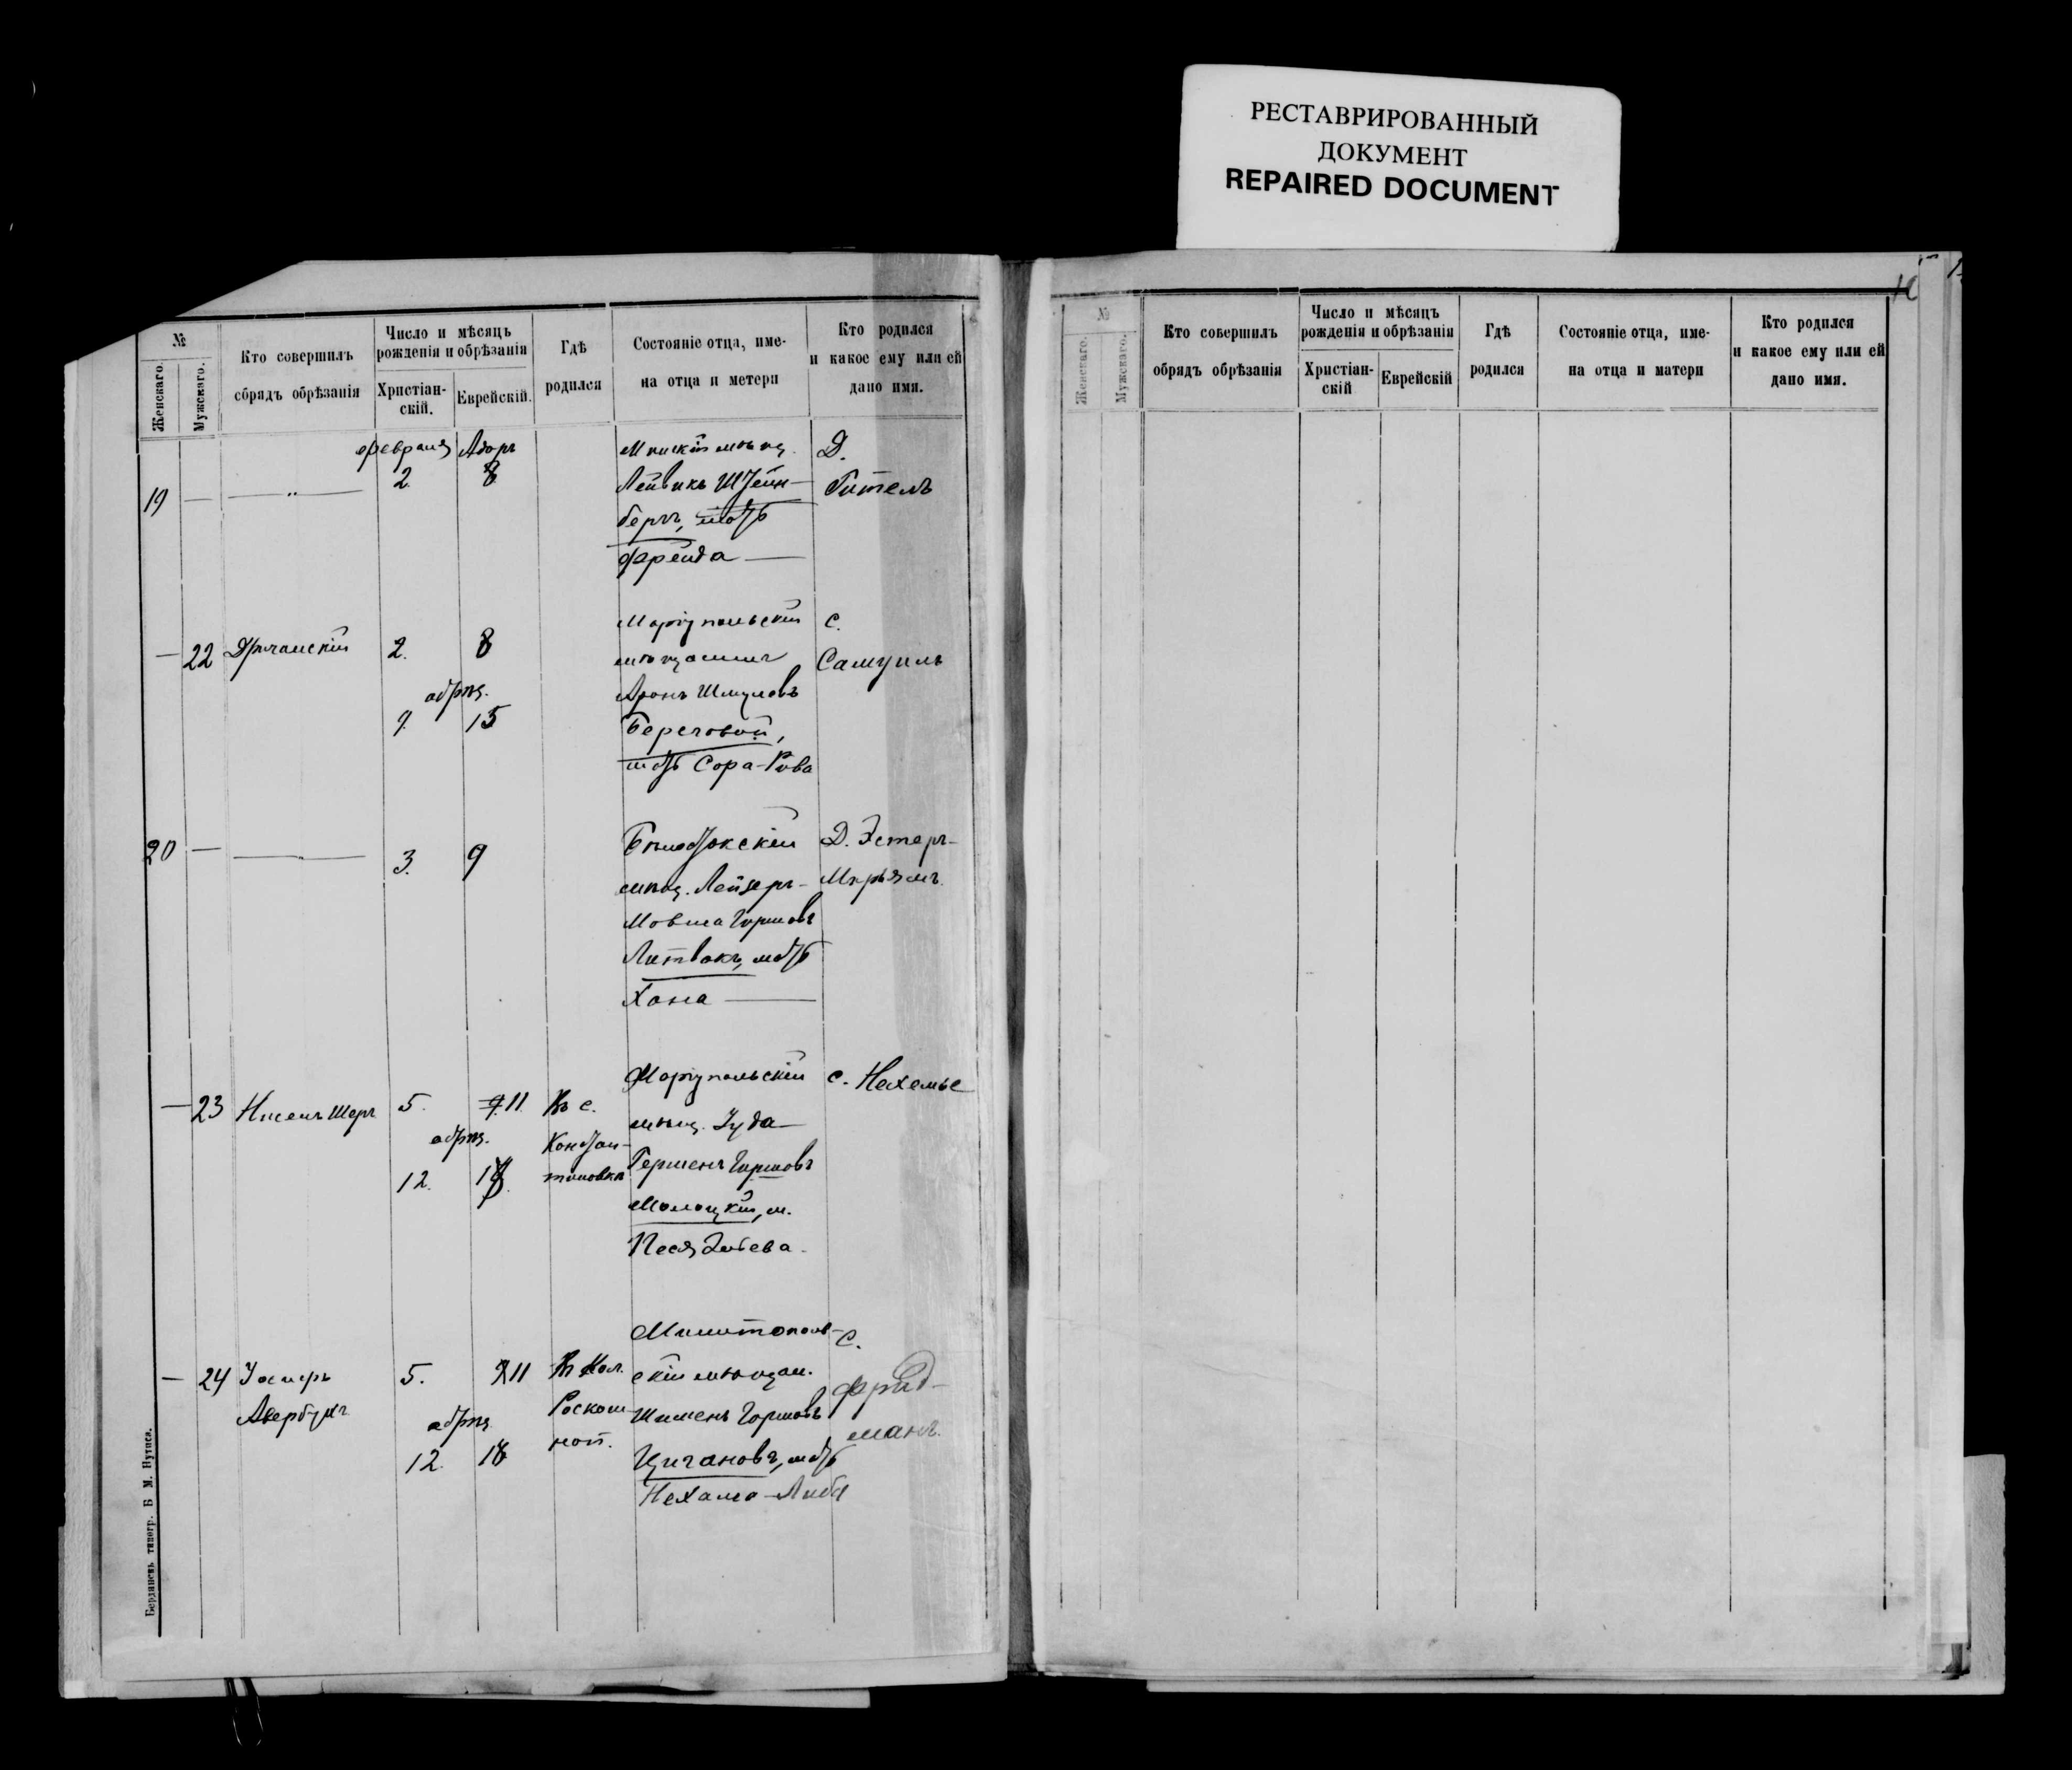 РЕСТАВРИРОВАННЫЙ
ДОКУМЕНТ
REPAIRED DOCUMENT
№
Женскаго.
Мужскаго.
Кто совершилъ
обрядъ обрѣзанія
Число и мѣсяцъ
рожденія и обрѣзанія
Христіан-
скій.
Еврейскій.
Гдѣ
родился
Состояніе отца, име-
на отца и метери
Кто родился
и какое ему или ей
дано имя.
19 — — „ —
февраля
2.
Адаръ
8
Минскій мѣщ.
Лейвикъ Штейн-
бергъ, мать
Фрейда —
Д.
Гитель
— 22
2. 8
обрѣз.
9. 15
Маріупольскій
мѣщанинъ
Аронъ Шмулевъ
Береговой,
мать Сора-Рива
С.
Самуилъ
20 — —
3. 9
Бѣлостокскій
мѣщ. Лейзеръ-
Мовша Гершовъ
Литвакъ, мать
Хана —
Д. Эстеръ-
Марьямъ.
— 23 Нисенъ Шеръ
5. 11.
обрѣз.
12. 18.
Въ с.
Констан-
тиновкѣ
Маріупольскій
мѣщ. Іуда-
Гершенъ Гиршовъ
м.
Песя
С. Нехемье
— 24
Авербухъ
5. 11
обрѣз.
12. 18
Въ Кол.
Роскош-
ной.
Мелитополь-
скій мѣщан.
Шименъ Горшовъ
Цигановъ, мать
Нехама-Либа
С.
Фрид-
манъ.
Бердянскъ типогр. Б М. Нутиса.
№
Женскаго.
Мужскаго.
Кто совершилъ
обрядъ обрѣзанія
Число и мѣсяцъ
рожденія и обрѣзанія
Христіан-
скій
Еврейскій
Гдѣ
родился
Состояніе отца, име-
на отца и матери
Кто родился
и какое ему или ей
дано имя.